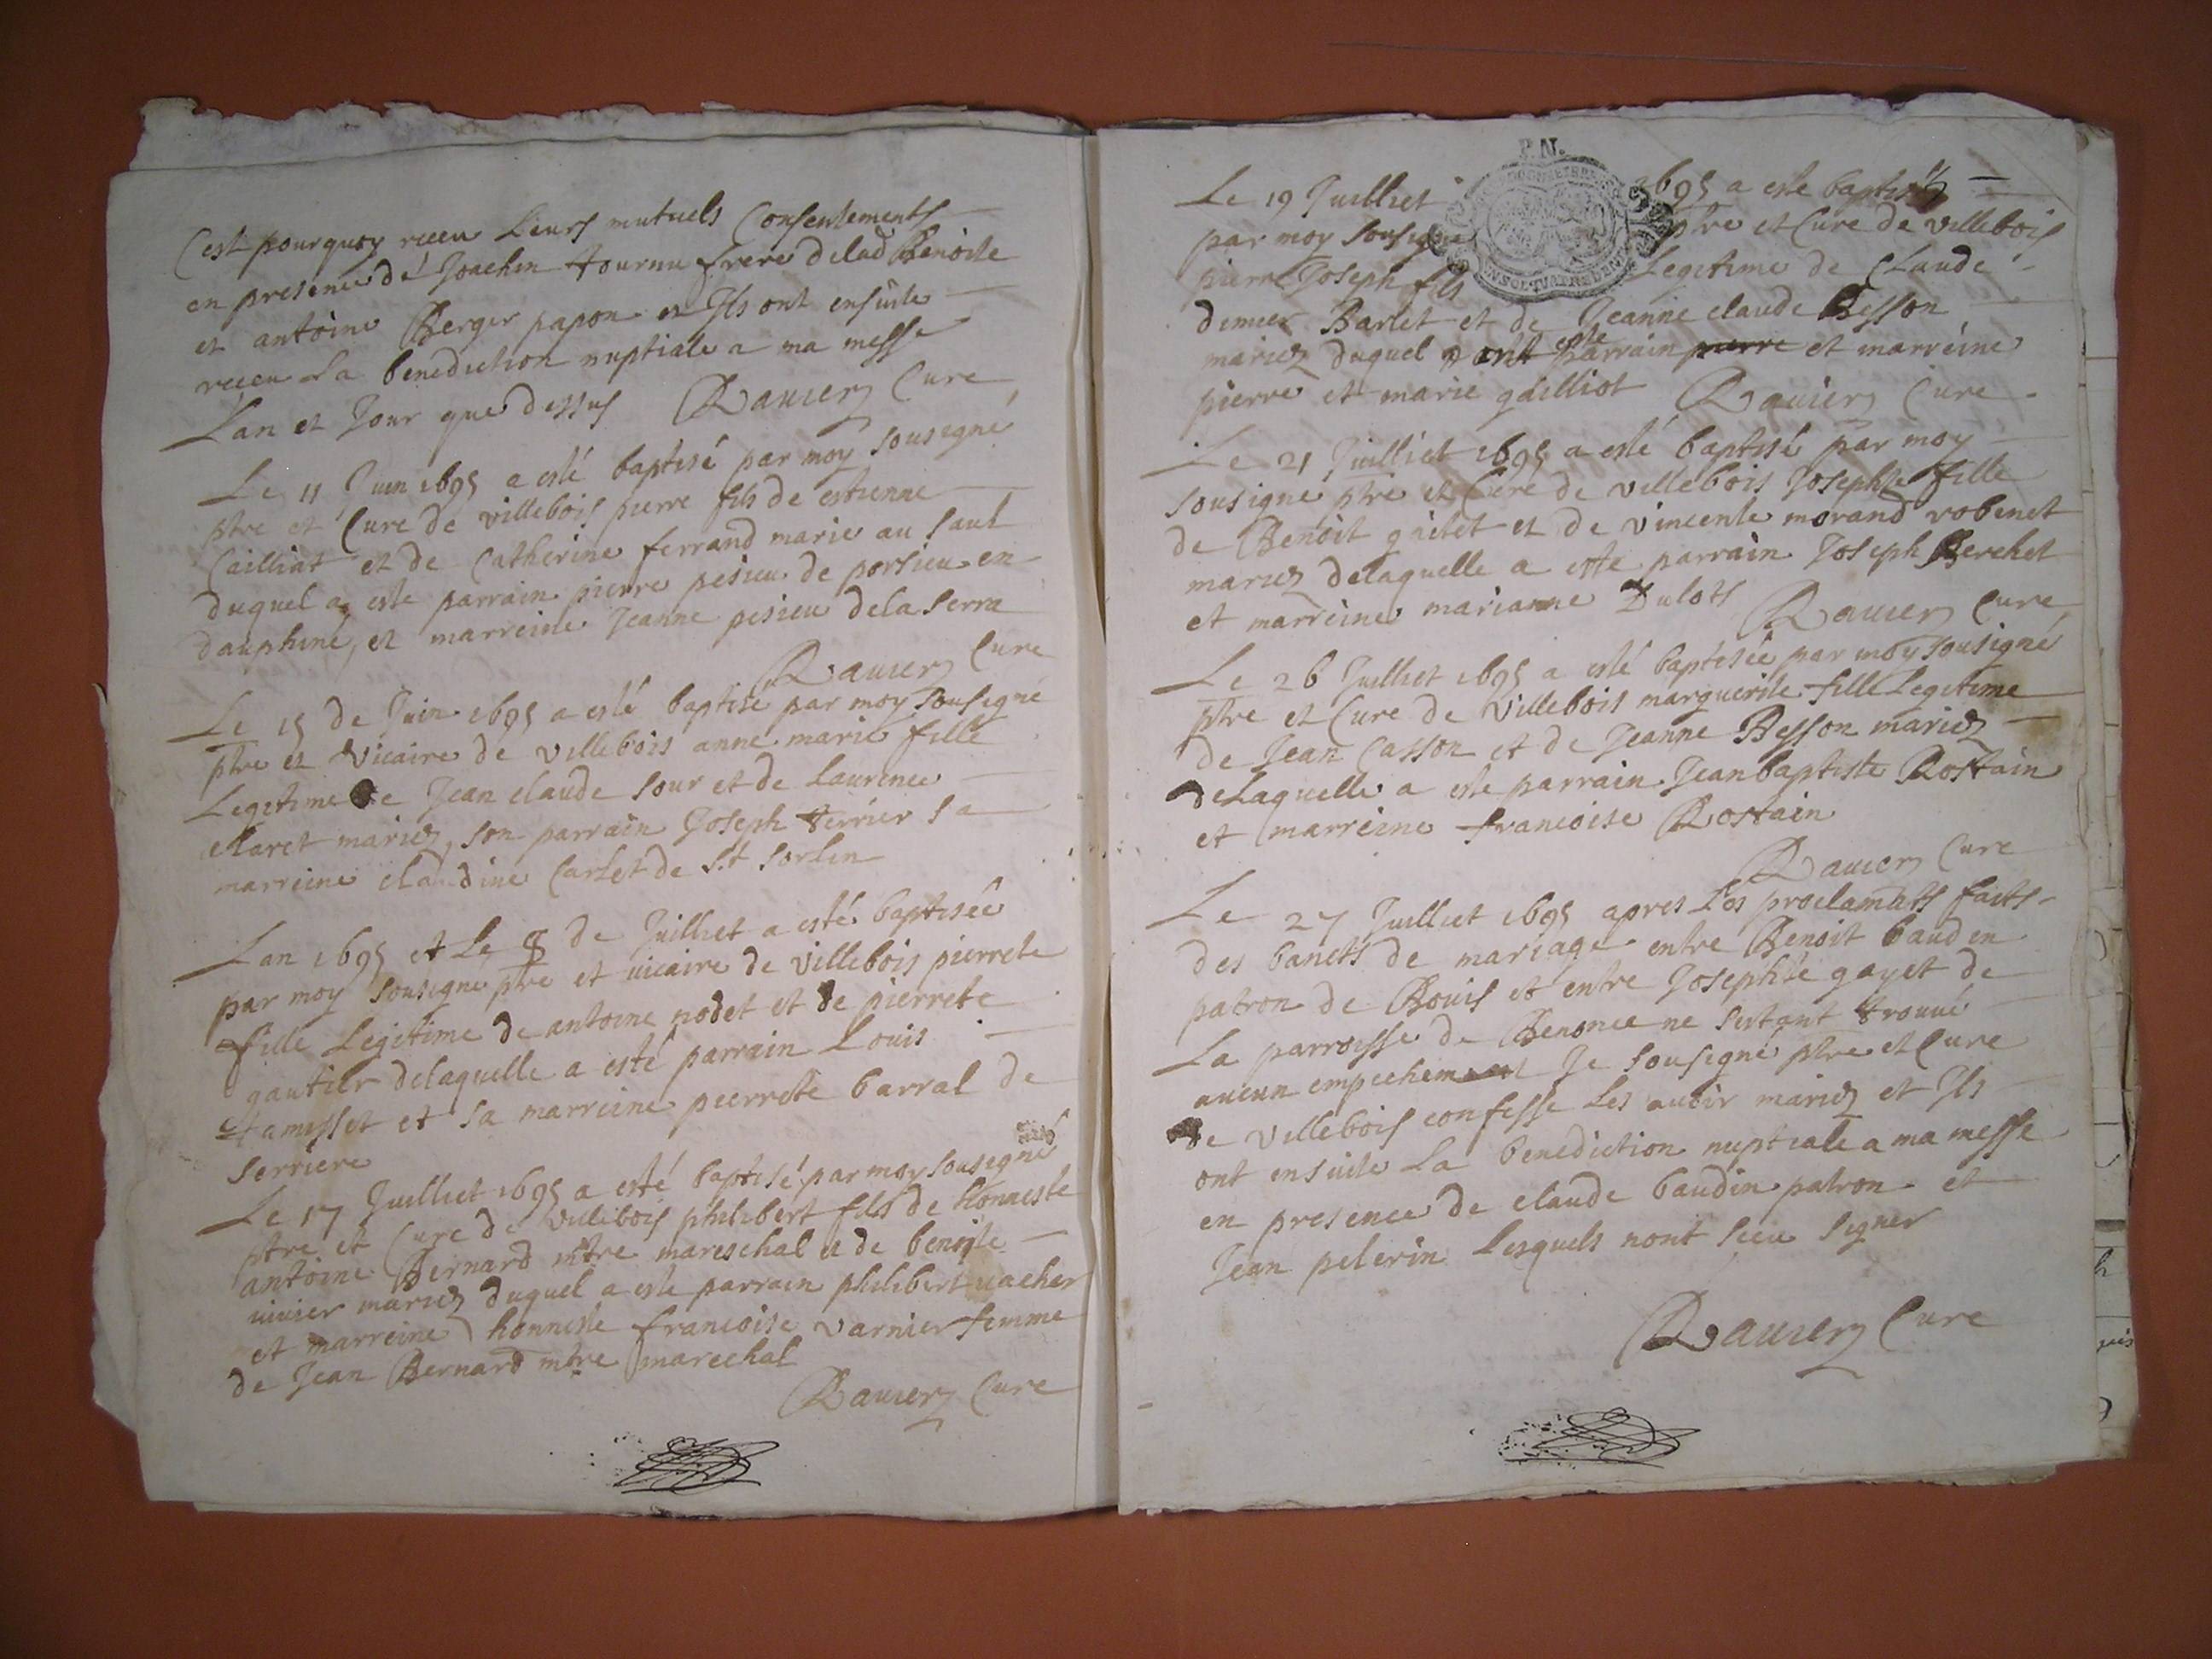 Cest pourquoy receu Leurs mutuels Consentements
en presence de Joachin tournu frere de lad Benoite
et antoine Berger papon et Ils ont ensuite
receu La benediction nuptiale a ma messe
Lan et Jour que dessus Ravier Cure
Le 11 Juin 1695 a esté baptisé par moy sousigné
ptre et Cure de villebois pierre fils de estienne
Cailliat et de Catherine ferrand marie au saut
duquel a este parrain pierre pesieu de porsieu en
dauphiné, et marreine Jeanne pesieu dela serra
Ravier Cure
Le 15 de Juin 1695 a esté baptisé par moy sousigné
ptre et vicaire de villebois anne marie fille
Legetime de Jean claude sour et de Laurence
claret mariez, son parrain Joseph terrier sa
marreine claudine Carlet de St sorlin
Lan 1695 et Le 8 de Juilliet a esté baptisée
par moy sousigne ptre et vicaire de villebois pierrete
fille Legitime de antoine nodet et de pierrete
gautier delaquelle a esté parrain Louis
tamisset et sa marreine pierrete barral de
serriere
Le 17 Juilliet 1695 a esté baptisé par moy sousigné
ptre et Cure de villebois philibert fils de honneste
antoine Bernard mtre mareschal et de benoite
vivier mariez duquel a este parrain philibert vacher
et marreine honneste francoise varnier femme
de Jean Bernard mtre marechal
Ravier Cure
P.N.
Le 19 Juilliet 1695 a este baptisé
par moy sousigne ptre et Cure de villebois
pierre Joseph fils Legetime de Claude
dimier Barlet et de Jeanne claude Besson
mariez duquel ont este parrain pierre et marreine
pierre et marie gailliot Ravier Cure
Le 21 Juilliet 1695 a esté baptisé par moy
sousigne ptre et Cure de villebois Josephte fille
de Benoit guilet et de vincente morand robenet
mariez delaquelle a este parrain Joseph Berchet
et marreine marianne Dulots Ravier Cure
Le 26 Juilliet 1695 a esté baptisée par moy sousigné
ptre et Cure de Villebois marguerite fille Legetime
de Jean Casson et de Jeanne Besson mariez
deLaquelle a este parrain Jean baptiste Rostain
et marreine francoise Rostain
Ravier Cure
Le 27 Juilliet 1695 apres Les proclamats faits
des bancts de mariage entre Benoit baudin
patron de Bouis et entre Josephte gayet de
La parroisse de Benonce ne sestant trouvé
aucun empechement Je sousigne ptre et Cure
de villebois confesse Les avoir mariez et Ils
ont ensuite La benediction nuptiale a ma messe
en presence de claude baudin patron et
Jean pelerin Lesquels nont sceu signer
Ravier Cure